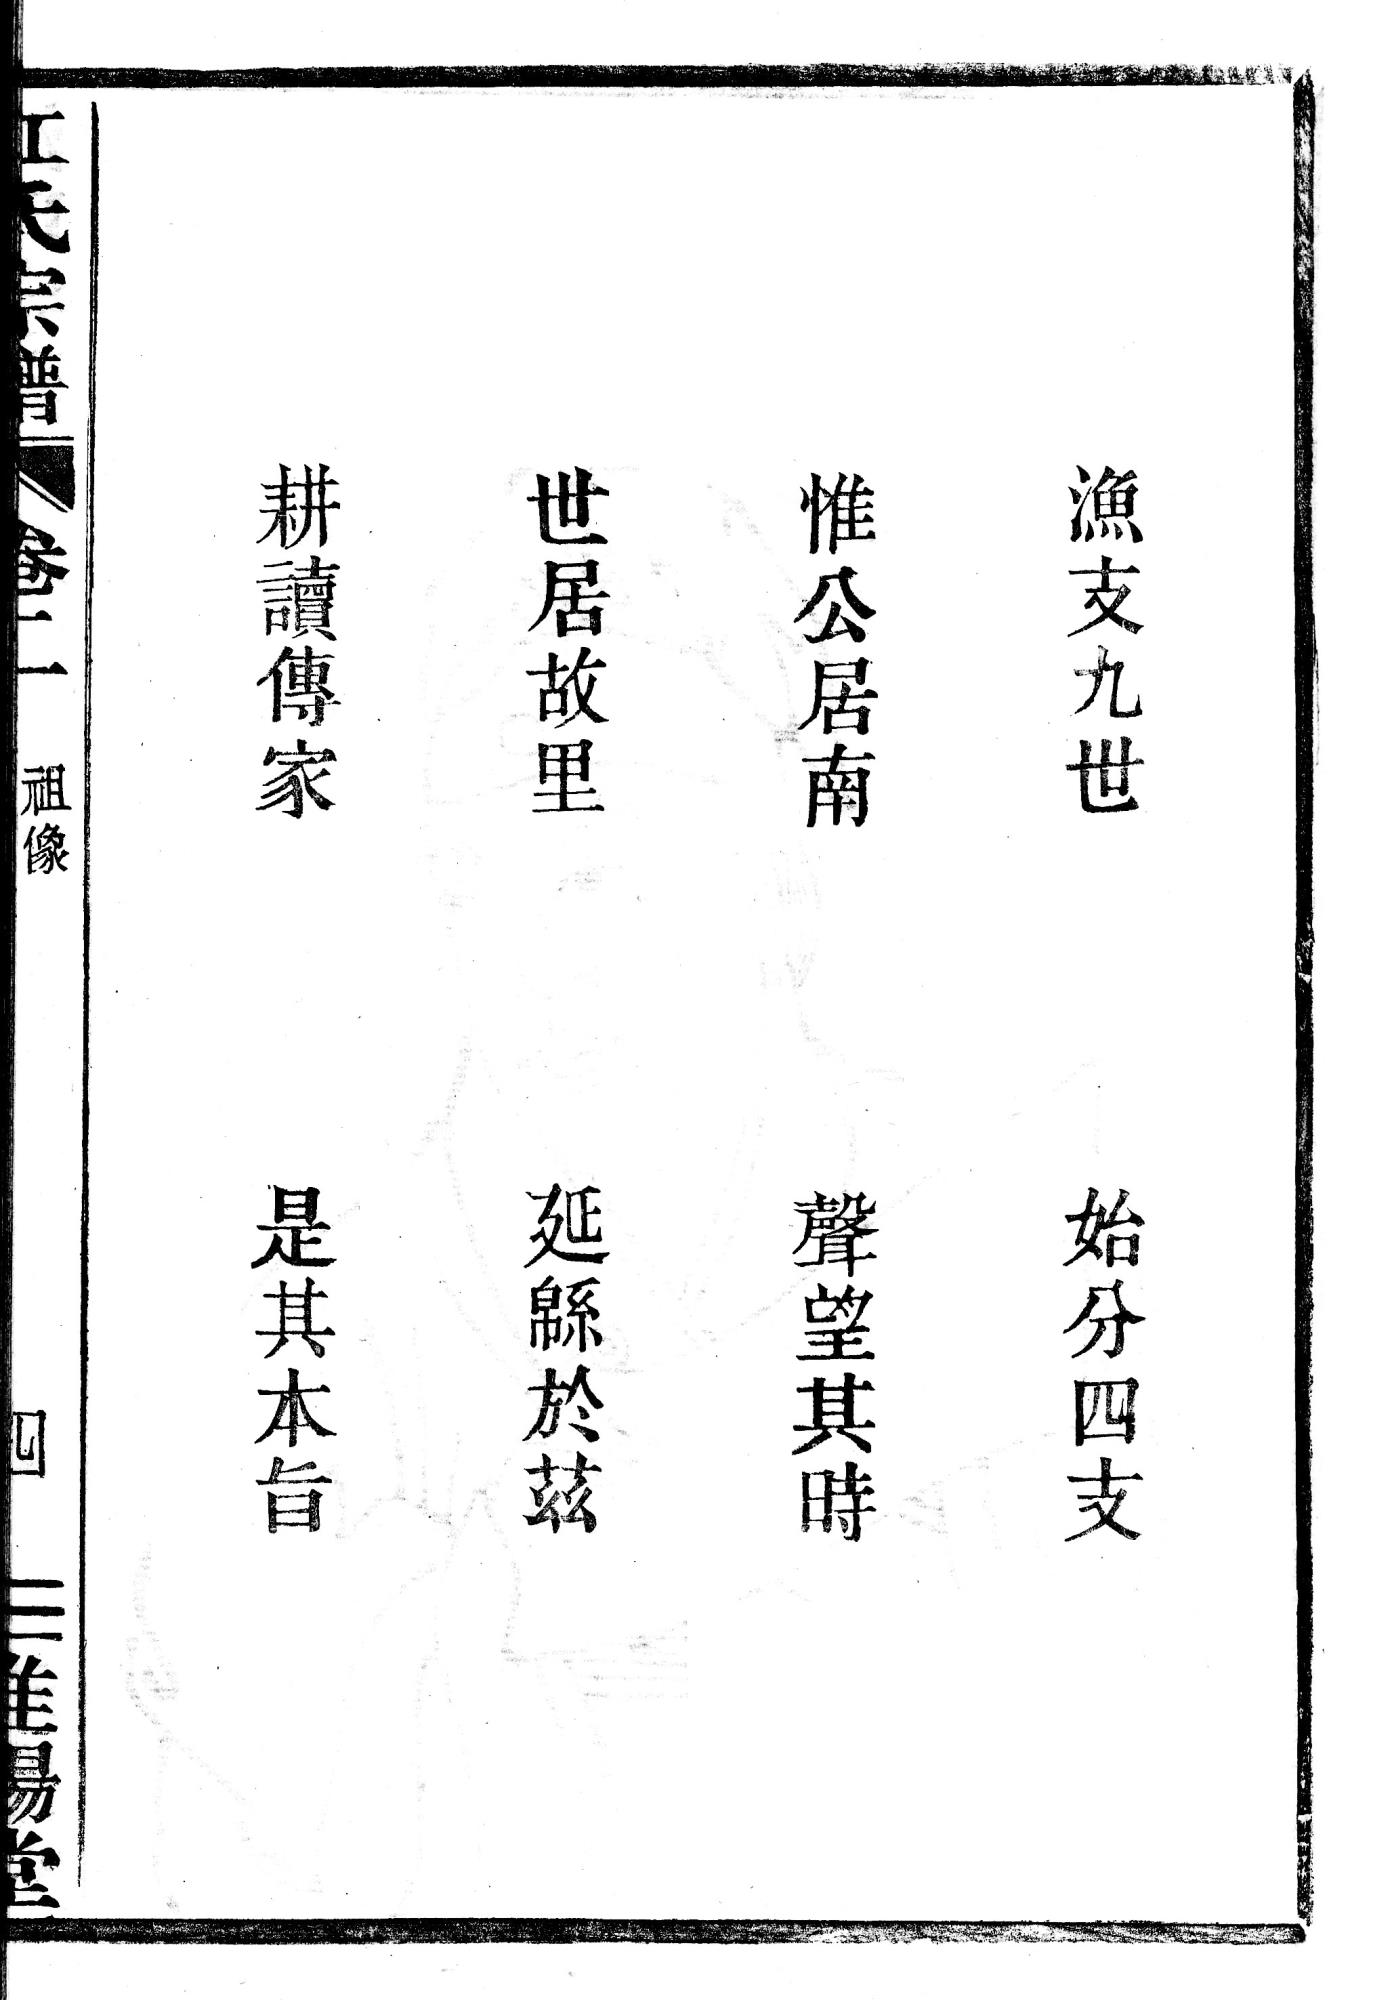 漁支九世　始分四支
惟公居南　聲望其時
世居故里　延緜於茲
耕讀傳家　是其本旨
江氏宗譜　卷二　祖像　四　淮陽堂